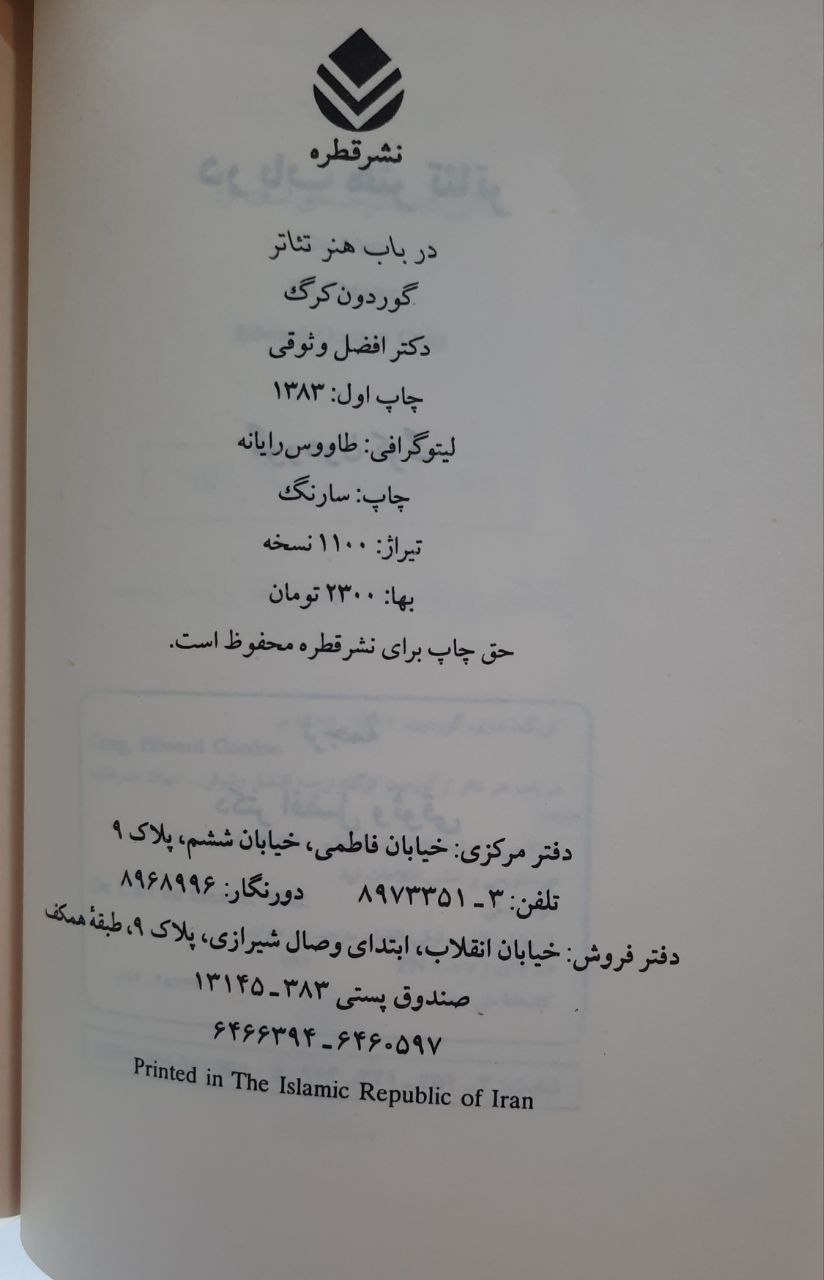 نشر قطره
در باب هنر تئاتر
گوردون کرگ
دکتر افضل وثوقی
چاپ اول: ۱۳۸۳
لیتوگرافی: طاووس‌رایانه
چاپ: سارنگ
تیراژ: ۱۱۰۰ نسخه
بها: ۲۳۰۰ تومان
حق چاپ برای نشر قطره محفوظ است.
دفتر مرکزی: خیابان فاطمی، خیابان ششم، پلاک ۹
تلفن: ۳ـ۸۹۷۳۳۵۱ دورنگار: ۸۹۶۸۹۹۶
دفتر فروش: خیابان انقلاب، ابتدای وصال شیرازی، پلاک ۹، طبقهٔ همکف
صندوق پستی ۳۸۳ـ۱۳۱۴۵
۶۴۶۰۵۹۷ـ۶۴۶۶۳۹۴
Printed in The Islamic Republic of Iran